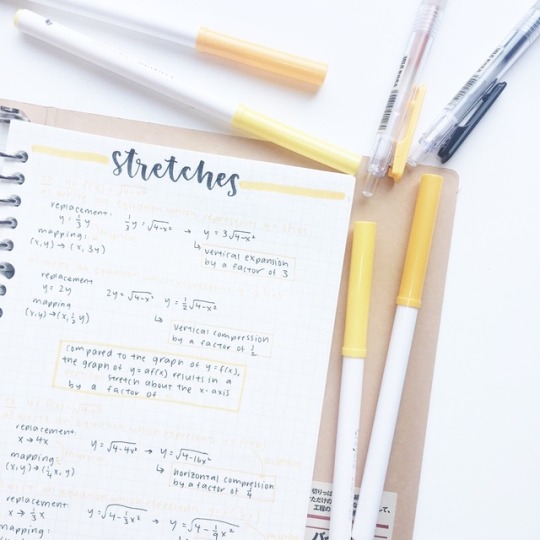 stretches
replacement:
y = 1/3 y
1/3 y = √4-x² → y = 3√4-x²
mapping:
(x,y) → (x, 3y)
↳ vertical expansion
by a factor of 3
replacement
y = 2y
2y = √4-x² y = 1/2 √4-x²
mapping
(x,y) → (x, 1/2 y)
↳ vertical compression
by a factor of 1/2
compared to the graph of y=f(x),
the graph of y=af(x) results in a
stretch about the x-axis
by a factor of
replacement
x → 4x
y = √4-4x² → y = √4-16x²
mapping:
(x,y) → (1/4 x, y)
↳ horizontal compression
by a factor of 1/4
replacement:
x → 1/3 x
y = √4-1/3 x² → y = √4-1/9 x²
mapping: